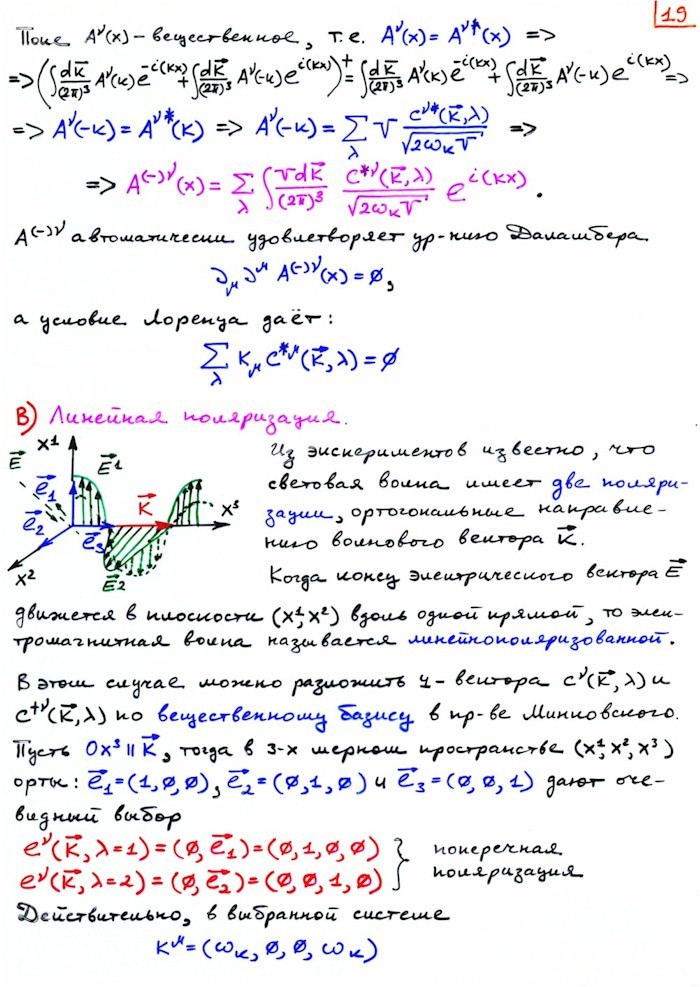 19
Поле Aᵛ(x) - вещественное, т.е. Aᵛ(x) = Aᵛ*(x) =>
=> (∫ dk⃗/(2π)³ Aᵛ(k) e^{-i(kx)} + ∫ dk⃗/(2π)³ Aᵛ(-k) e^{i(kx)})⁺ = ∫ dk⃗/(2π)³ Aᵛ(k) e^{-i(kx)} + ∫ dk⃗/(2π)³ Aᵛ(-k) e^{i(kx)} =>
=> Aᵛ(-k) = Aᵛ*(k) => Aᵛ(-k) = Σ_λ V cᵛ*(k⃗,λ)/√(2ω_k V) =>
=> A⁽⁻⁾ᵛ(x) = Σ_λ ∫ Vdk⃗/(2π)³ c*ᵛ(k⃗,λ)/√(2ω_k V) e^{i(kx)}.
A⁽⁻⁾ᵛ автоматически удовлетворяет ур-нию Даламбера
∂_μ ∂^μ A⁽⁻⁾ᵛ(x) = 0,
а условие Лоренца даёт:
Σ_λ k_μ c*^μ(k⃗,λ) = 0
В) Линейная поляризация.
x¹ E⃗ E⃗¹ e⃗₁ e⃗₂ e⃗₃ k⃗ x³ x² E⃗2
Из экспериментов известно, что
световая волна имеет две поляри-
зации, ортогональные направле-
нию волнового вектора k⃗.
Когда конец электрического вектора E⃗
движется в плоскости (x¹,x²) вдоль одной прямой, то элек-
тромагнитная волна называется линейнополяризованной.
В этом случае можно разложить 4-вектора cᵛ(k⃗,λ) и
c⁺ᵛ(k⃗,λ) по вещественному базису в пр-ве Минковского.
Пусть 0x³ || k⃗, тогда в 3-х мерном пространстве (x¹,x²,x³)
орты: e⃗₁=(1,0,0), e⃗₂=(0,1,0) и e⃗₃=(0,0,1) дают оче-
видный выбор
eᵛ(k⃗,λ=1) = (0,e⃗₁) = (0,1,0,0)
eᵛ(k⃗,λ=2) = (0,e⃗₂) = (0,0,1,0)
} поперечная
поляризация
Действительно, в выбранной системе
k^μ = (ω_k, 0, 0, ω_k)